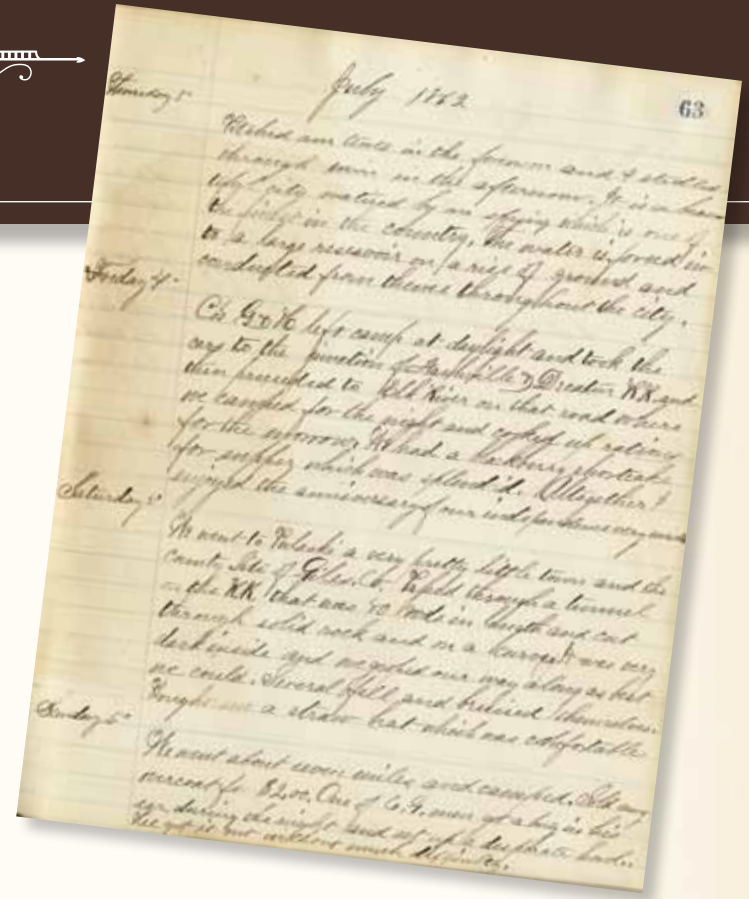 July 1862
63
Thursday 3"
Pitched our tents in the forenoon and I strolled
through town in the afternoon. It is a beau
tiful city watered by an spring which is one of
the in the country. The water is forced in
to a large reservoir on a rise of ground and
conducted from thence throughout the city.
Friday 4"
Co's G & H left camp at daylight and took the
cars to the junction of Nashville & Decatur RR and
then proceeded to Elk River on that road where
we camped for the night and cooked up rations
for the morrow. We had a blackberry shortcake
for supper which was splendid. Altogether I
enjoyed the anniversary of our independence very much
Saturday 5"
We went to Pulaski a very pretty little town and the
county site of Giles Co. Passed through a tunnel
on the RR that was 40 rods in length and cut
through solid rock and on a curve. It was very
dark inside and we groped our way along as best
we could. Several fell and bruised themselves.
Bought me a straw hat which was comfortable
Sunday 6"
We went about seven miles and camped. Sold my
overcoat for $2.00. One of Co. G. men got a bug in his
ear during the night and set up a desperate
He got it out without much difficulty.